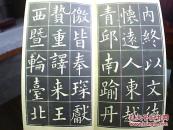 内終以文德
懷遠人東越
青邱南踰丹
徼皆奉琛獻
贄重譯來王
西暨輪臺北